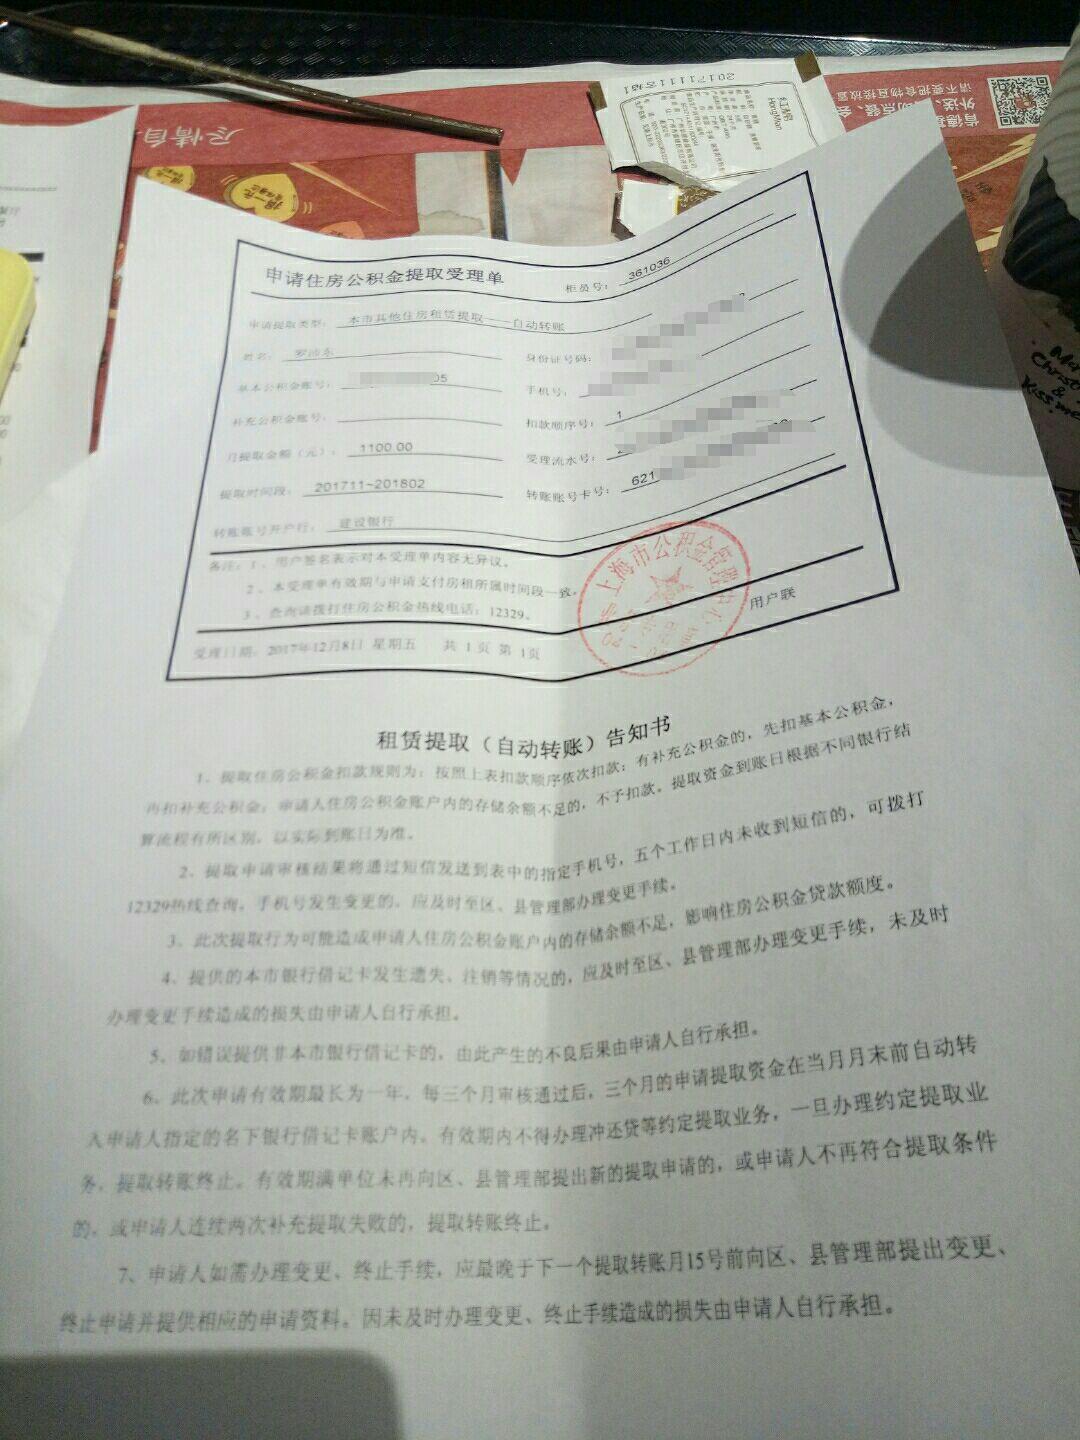 尽情自
20171111吉福1
红棉
HongMian
请不要把食物直接放置
外送、
肯德基
申请住房公积金提取受理单
柜员号: 361036
申请提取类型: 本市其他住房租赁提取——自动转账
姓名:
身份证号码:
基本公积金账号: 05
手机号:
补充公积金账号:
扣款顺序号: 1
月提取金额（元）: 1100.00
受理流水号: 2
提取时间段: 201711~201802
转账账号卡号: 621
转账账号开户行: 建设银行
备注: 1、用户签名表示对本受理单内容无异议。
2、本受理单有效期与申请支付房租所属时间段一致。
3、查询请拨打住房公积金热线电话: 12329。
上海市公积金管理中心
用户联
受理日期: 2017年12月8日 星期五 共 1页 第 1页
租赁提取（自动转账）告知书
1、提取住房公积金扣款规则为: 按照上表扣款顺序依次扣款; 有补充公积金的, 先扣基本公积金,
再扣补充公积金; 申请人住房公积金账户内的存储余额不足的, 不予扣款。提取资金到账日根据不同银行结
算流程有所区别, 以实际到账日为准。
2、提取申请审核结果将通过短信发送到表中的指定手机号, 五个工作日内未收到短信的, 可拨打
12329热线查询。手机号发生变更的, 应及时至区、县管理部办理变更手续。
3、此次提取行为可能造成申请人住房公积金账户内的存储余额不足, 影响住房公积金贷款额度。
4、提供的本市银行借记卡发生遗失、注销等情况的, 应及时至区、县管理部办理变更手续, 未及时
办理变更手续造成的损失由申请人自行承担。
5、如错误提供非本市银行借记卡的, 由此产生的不良后果由申请人自行承担。
6、此次申请有效期最长为一年, 每三个月审核通过后, 三个月的申请提取资金在当月月末前自动转
入申请人指定的名下银行借记卡账户内。有效期内不得办理冲还贷等约定提取业务, 一旦办理约定提取业
务, 提取转账终止。有效期满单位未再向区、县管理部提出新的提取申请的, 或申请人不再符合提取条件
的, 或申请人连续两次补充提取失败的, 提取转账终止。
7、申请人如需办理变更、终止手续, 应最晚于下一个提取转账月15号前向区、县管理部提出变更、
终止申请并提供相应的申请资料。因未及时办理变更、终止手续造成的损失由申请人自行承担。